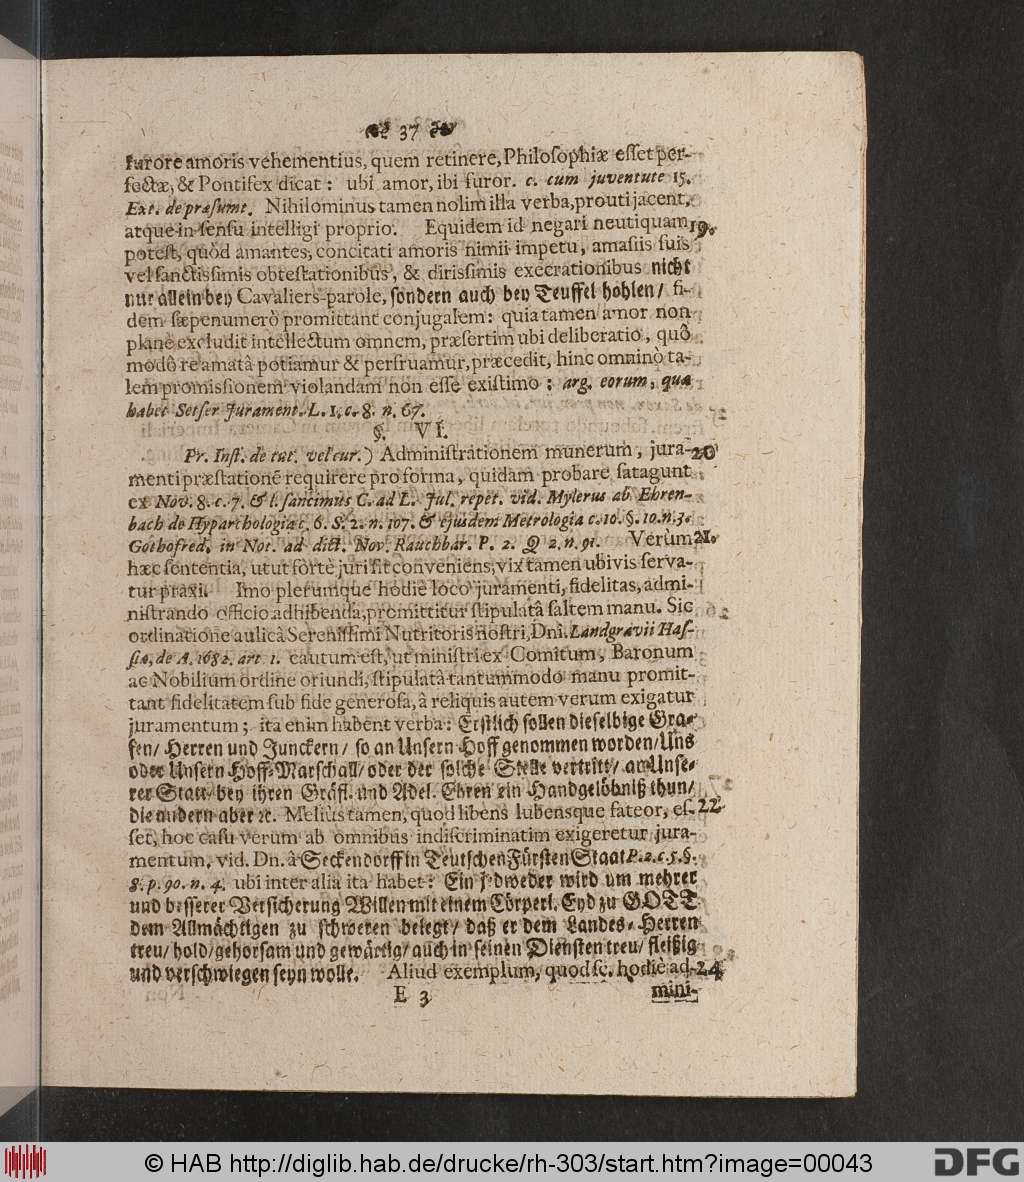 37
furore amoris vehementius, quem retinere, Philosophiæ esset per-
fectæ, & Pontifex dicat: ubi amor, ibi furor. c. cum juventute 15.
Ext. de præsumt. Nihilominus tamen nolim illa verba, prouti jacent,
atque in sensu intelligi proprio. Equidem id negari neutiquam 19.
potest, quòd amantes, concitati amoris nimii impetu, amasiis suis
vel sanctissimis obtestationibus, & dirissimis execrationibus nicht
nur allein bey Cavaliers-parole, sondern auch bey Teuffel hohlen/ fi-
dem sæpenumerò promittant conjugalem: quia tamen amor non
planè excludit intellectum omnem, præsertim ubi deliberatio, quô
modô re amatâ potiamur & perfruamur, præcedit, hinc omninò ta-
lem promissionem violandam non esse existimo; arg. eorum, quæ
habet Setser Jurament. L. 1. c. 8. n. 67.
§. VI.
Pr. Inst. de tut. vel cur.) Administrationem munerum, jura- 20
menti præstationẽ requirere pro forma, quidam probare satagunt
ex Nov. 8. c. 7. & l. sancimus C. ad L. Jul. repet. vid. Mylerus ab Ehren-
bach de Hyparchologia c. 6. S. 2. n. 107. & ejusdem Metrologia c. 16. §. 10. n. 3.
Gothofred. in Not. ad dict. Nov. Rauchbar. P. 2. Q 2. n. 91. Verum 21.
hæc sententia, utut fortè juri sit conveniens, vix tamen ubivis serva-
tur praxi. Imo plerumque hodiè loco juramenti, fidelitas, admi-
nistrando officio adhibenda, promittitur stipulatâ saltem manu. Sic
ordinatione aulicâ Serenissimi Nutritoris nostri, Dni. Landgravii Has-
siæ, de A. 1682. art. 1. cautum est, ut ministri ex Comitum, Baronum
ac Nobilium ordine oriundi, stipulatâ tantummodo manu promit-
tant fidelitatem sub fide generosa, à reliquis autem verum exigatur
juramentum; ita enim habent verba: Erstlich sollen dieselbige Gra-
fen/ Herren und Junckern/ so an Unsern Hoff genommen worden/ Uns
oder Unsern Hoff-Marschall/ oder der solche Stelle vertritt/ an Unse-
rer Statt/ bey ihren Gräfl. und Adel. Ehren ein Handgelöbniß thun/
die andern aber ꝛc. Melius tamen, quod libens lubensque fateor, es- 22
set, hoc casu verum ab omnibus indiscriminatim exigeretur jura-
mentum, vid. Dn. à Seckendorff in Teutschen Fürsten Staat P. 2. c. 5. §.
8. p. 90. n. 4. ubi inter alia ita habet: Ein jedweder wird um mehrer
und besserer Versicherung Willen mit einem Cörperl. Eyd zu GOTT
dem Allmächtigen zu schweren belegt/ daß er dem Landes-Herren
treu/ hold/ gehorsam und gewärtig/ auch in seinen Diensten treu/ fleißig
und verschwiegen seyn wolle. Aliud exemplum, quod sc. hodiè ad- 24
E 3
mini-
© HAB http://diglib.hab.de/drucke/rh-303/start.htm?image=00043
DFG